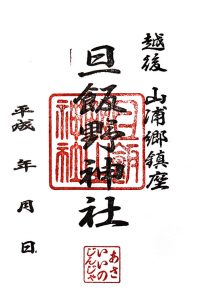 越後 山浦郷鎮座
旦飯野神社
旦飯野
神社
平成 年 月 日
あさ
いいの
じんじゃ